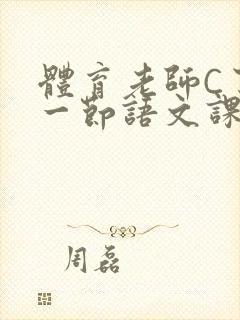 體育老師C
一節語文課
周磊